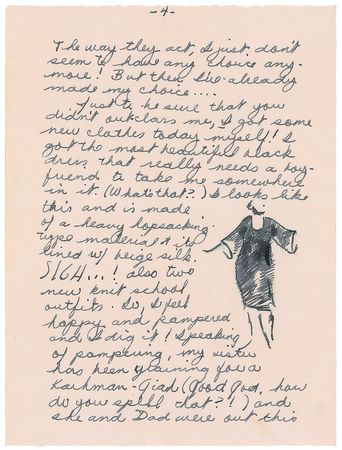 -4-
The way they act, I just don't
seem to have any choice any-
more! But then I've already
made my choice....
Just to be sure that you
didn't outclass me, I got some
new clothes today myself! I
got the most beautiful black
dress that really needs a boy-
friend to take me somewhere
in it. (What's that?) It looks like
this and is made
of a heavy hopsacking
type material & it's
lined w/ beige silk.
SIGH...! also two
new knit school
outfits. So, I feel
happy and pampered
and I dig it! Speaking
of pampering, my sister
has been yearning for a
Karhman-Giah (Good God, how
do you spell that?!) and
she and Dad were out this